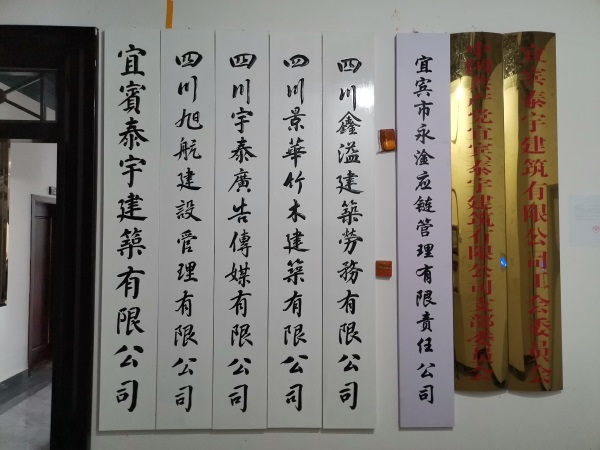 宜賓泰宇建築有限公司
四川旭航建設管理有限公司
四川宇泰廣告傳媒有限公司
四川景華竹木建築有限公司
四川鑫溢建築勞務有限公司
宜宾市永淦应链管理有限责任公司
中国共产党宜宾泰宇建筑有限公司支部委员会
宜宾泰宇建筑有限公司工会委员会